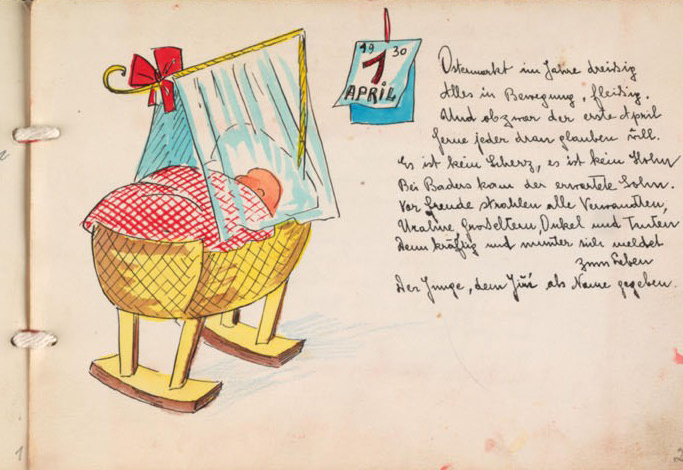 19 30
1
APRIL
Ostermarkt im Jahre dreißig
Alles in Bewegung, fleißig.
Und obzwar der erste April
jeder dran glauben will.
Es ist kein Scherz, es ist kein Hohn
Bei Baders kam der erwartete Sohn.
Vor Freude strahlen alle Verwandten,
Urahne, Großeltern, Onkel und Tanten
Denn kräftig und munter sich meldet
zum Leben
Der Junge, dem Jiří als Name gegeben.
1
2